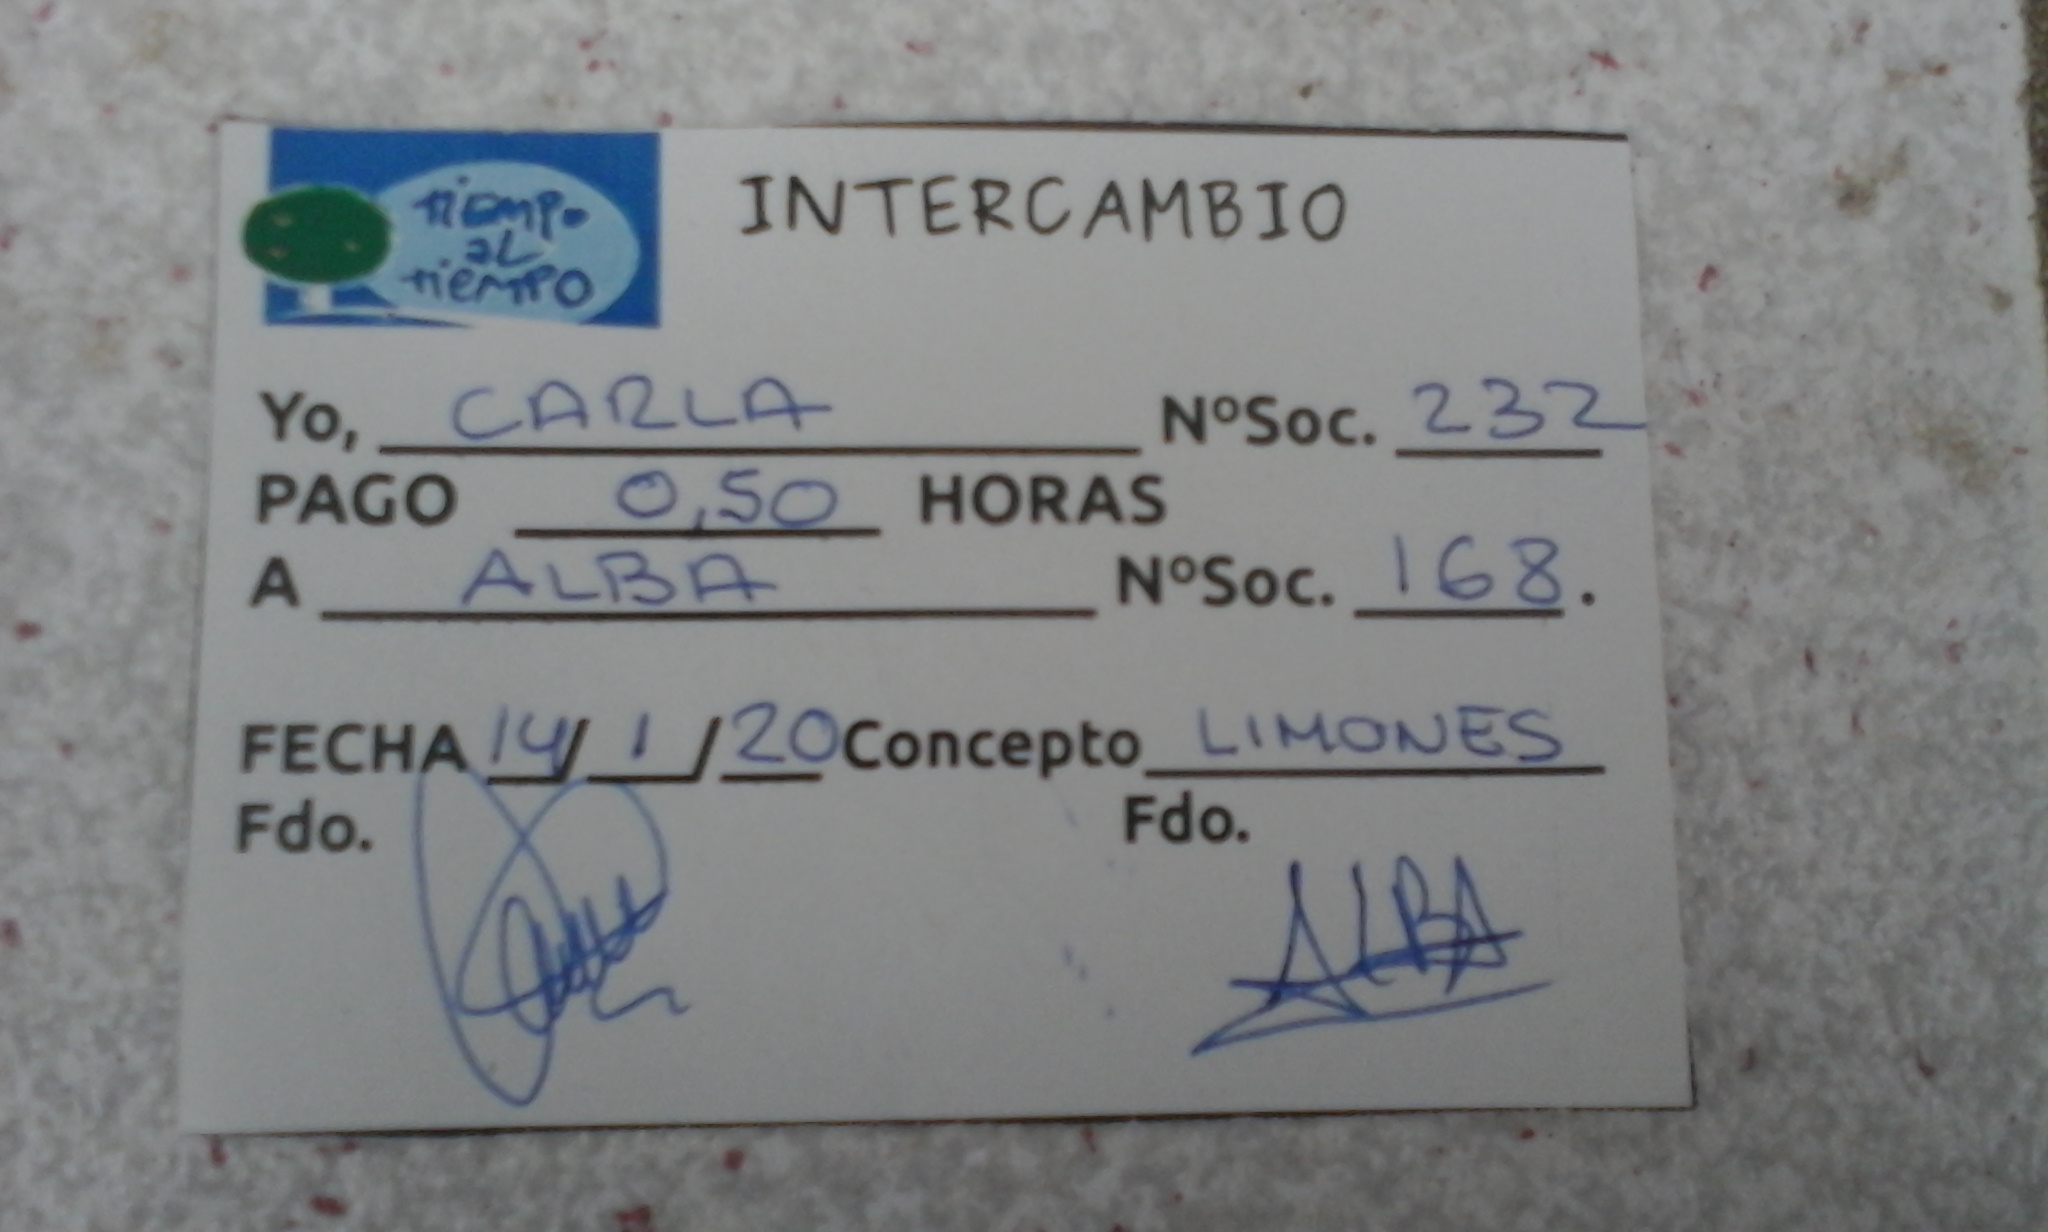 tiempo
al
tiempo
INTERCAMBIO
Yo, CARLA NºSoc. 232
PAGO 0,50 HORAS
A ALBA NºSoc. 168.
FECHA 14/1/20 Concepto LIMONES
Fdo. Fdo.
ALBA